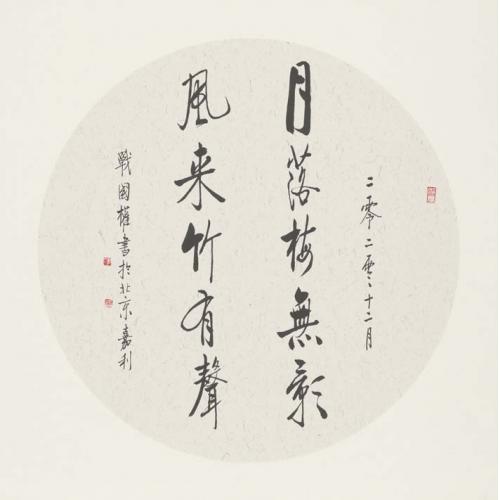 二零二零十二月
月落梅無影
風来竹有聲
戰國權書於北京嘉利